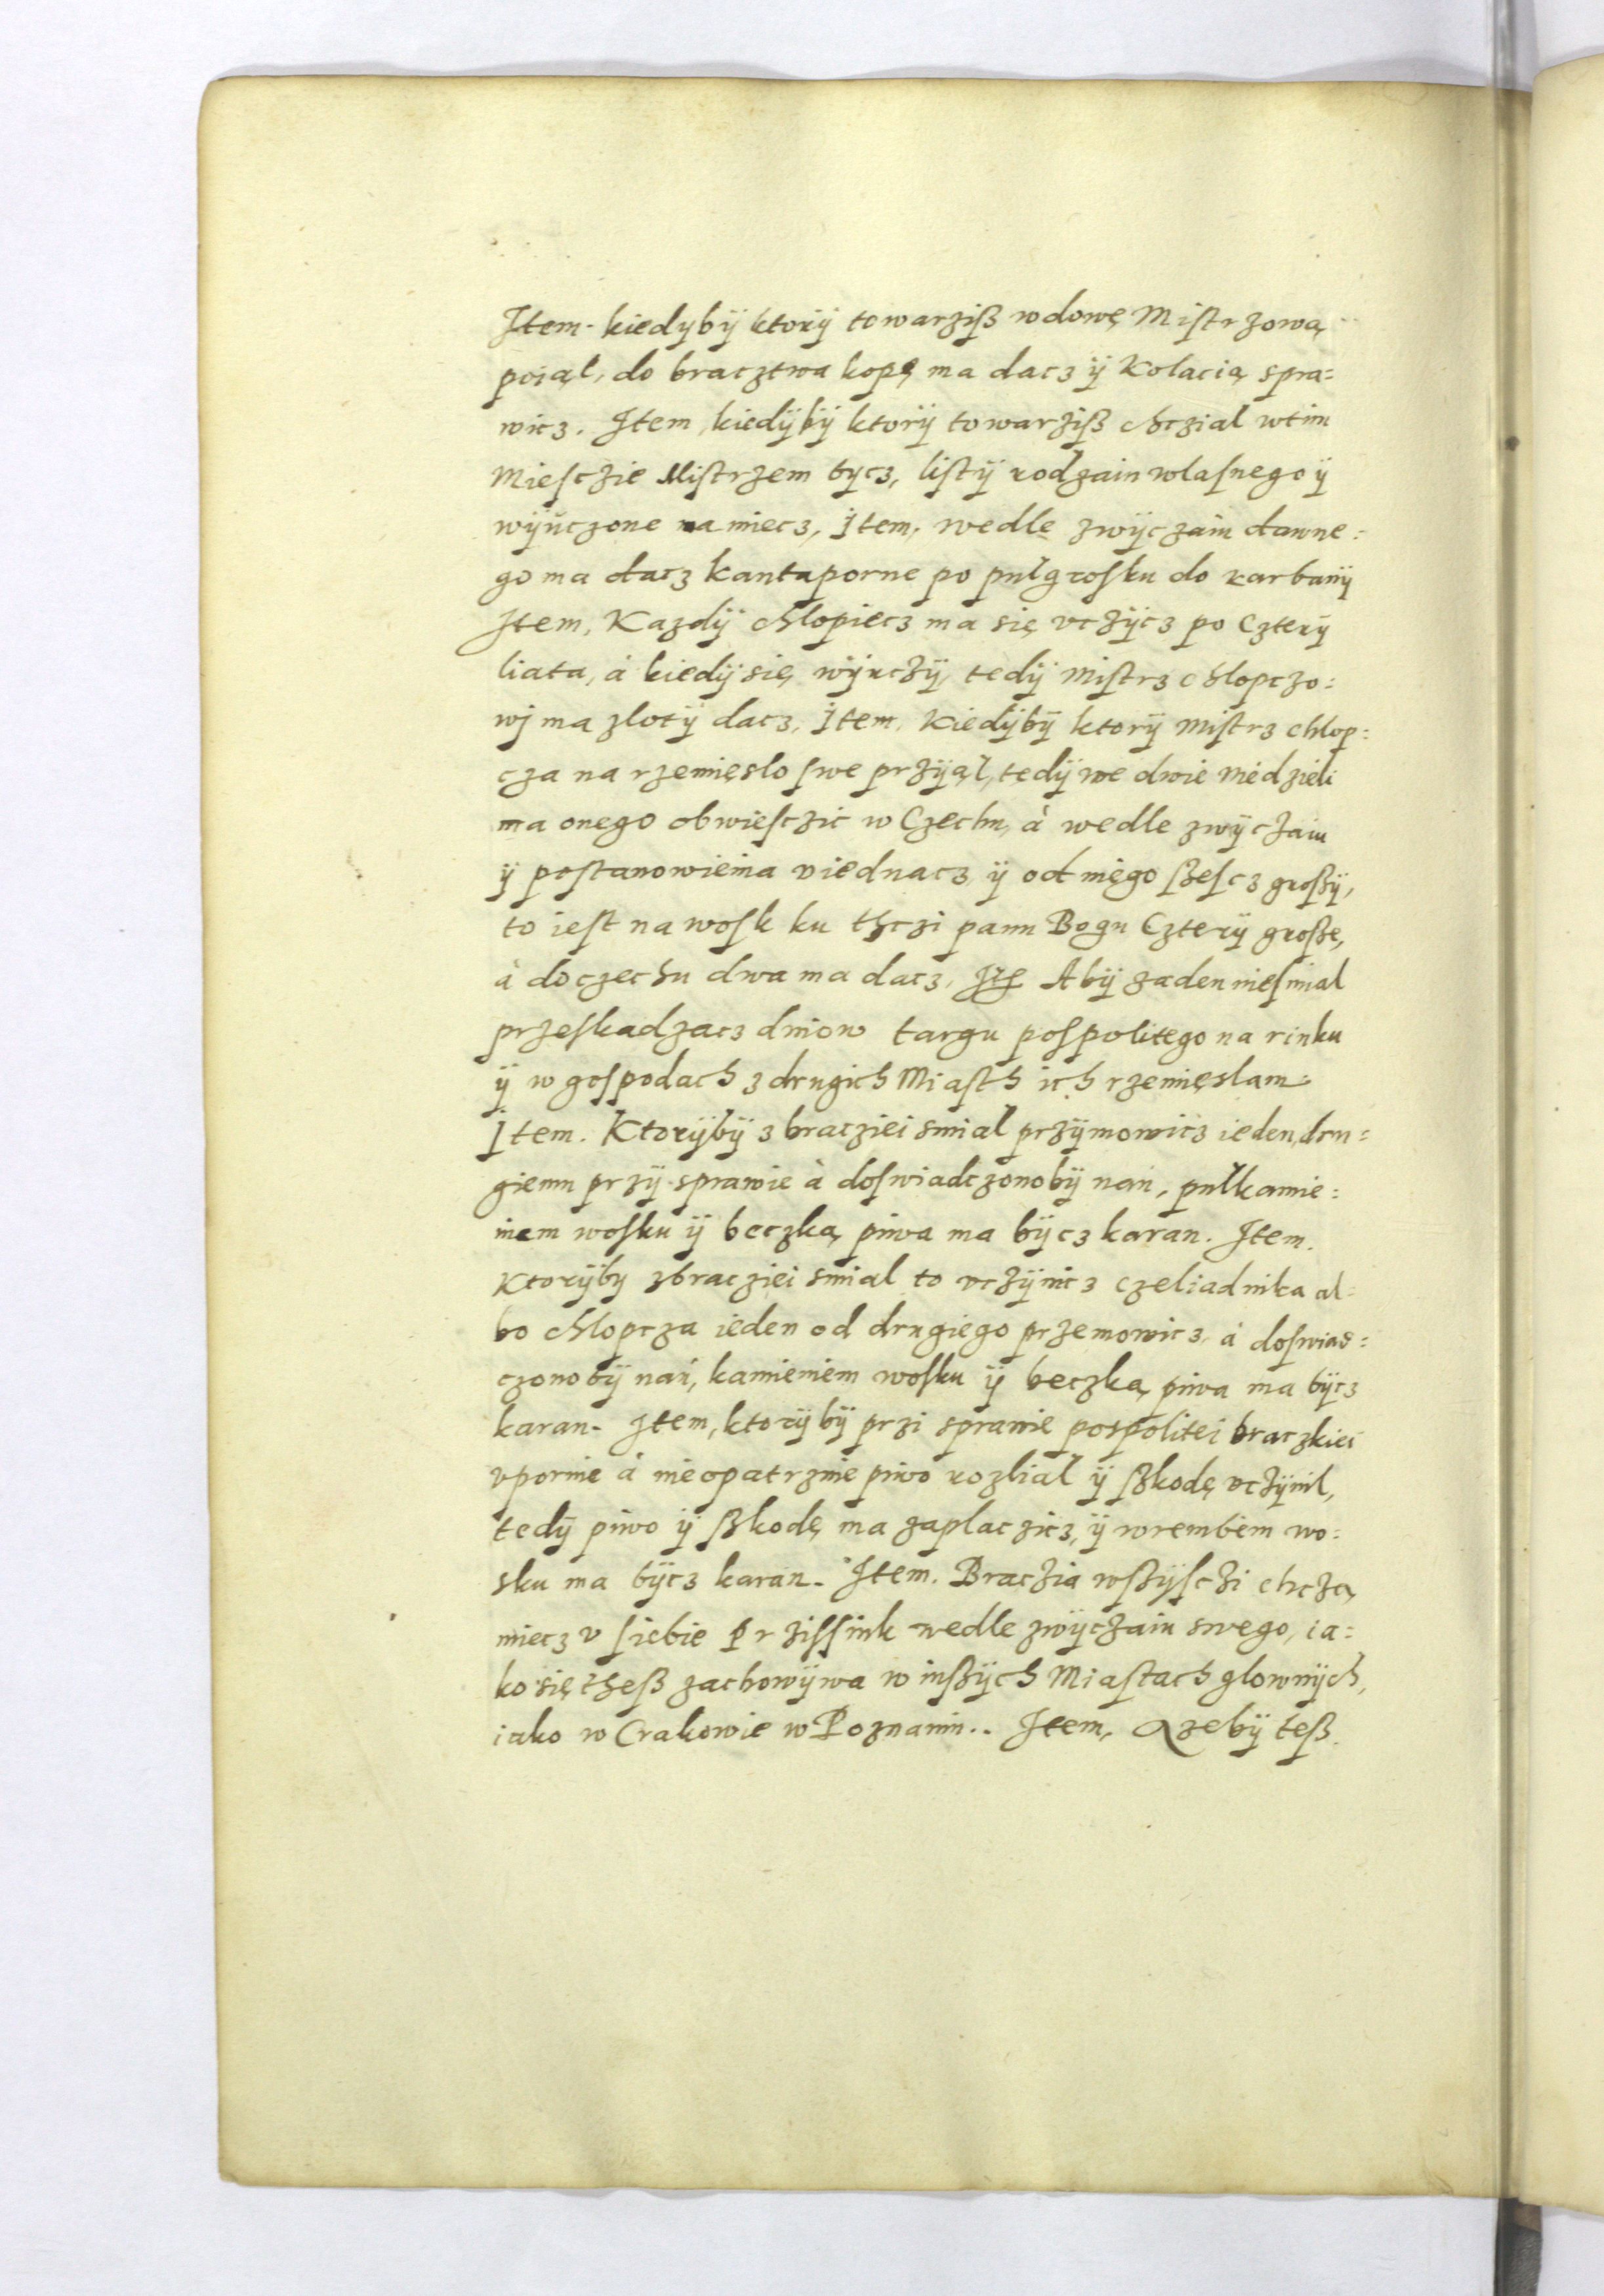 Item. kiedybÿ ktorÿ towarziß wdowę Mistrzową
poiąl, do bracztwa kopę ma dacz ÿ Kolacią spra=
wicz. Item, kiedÿbÿ ktorÿ towarziß chczial wtim
Miesczie Mistrzem bycz, listÿ rodzaiu wlasnego ÿ
wÿuczone ma miecz, Item, wedle zwÿczaiu dawne=
go ma dacz kantaporne po pulgrosku do karbanÿ
Item, Kazdÿ chlopiecz ma się vczÿcz po Czterÿ
liata, à kiedÿ się wÿuczÿ, tedÿ Mistrz chlopczo=
wj ma zlotÿ dacz, Item, Kiedÿbÿ ktorÿ Mistrz chlop=
cza na rzemięslo swe przÿął, tedÿ we dwie niedzieli
ma onego obwiesczic w Czechu, à wedle zwÿczaiu
ÿ postanowienia viednacz, ÿ od niego ßescz großÿ,
to iest na wosk ku thczi panu Bogu Czterÿ große,
à do czechu dwa ma dacz, Ite Abÿ zaden niesmial
przeskadzacz dniow targu pospolitego na rinku
ÿ w gospodach z drugich Miasth ich rzemięslam.
Item. Ktorÿbÿ z bracziei smial przÿmowicz ieden, dru=
giemu przÿ sprawie à doswiadczonobÿ nań, pulkamie=
niem wosku ÿ beczką piwa ma bÿcz karan. Item.
Ktorÿby zbracziei smial to vczÿnicz czeliadnika al=
bo chlopcza ieden od drugiego przemowicz, à doswiad=
czonobÿ nań, kamieniem wosku ÿ beczką piwa ma bÿcz
karan. Item, ktorÿbÿ przi sprawie pospolitei braczkiei
vpornie à nieopatrznie piwo rozlial ÿ ßkodę vczÿnil,
tedÿ piwo ÿ ßkodę ma zaplaczicz, ÿ wrembem wo=
sku ma bÿcz karan. Item. Braczia wßÿsczi chczą
miecz v siebie Przissink wedle zwÿczaiu swego, ia=
ko się theß zachowÿwa w inßÿch Miastach glownÿch,
iako w Crakowie w Poznaniu.. Item, Azebÿ teß